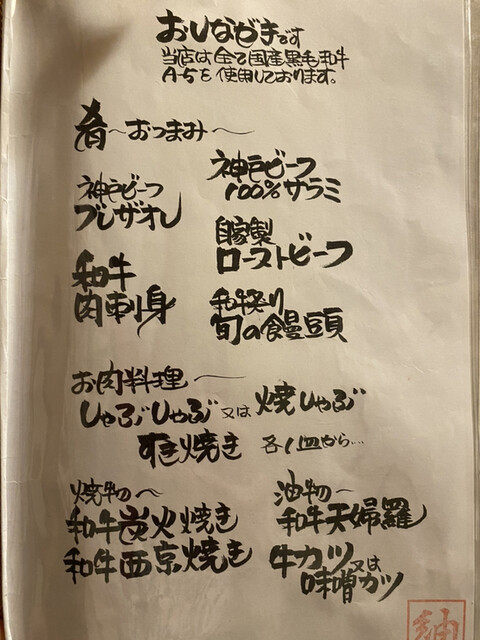 おしながきです
当店は全て国産黒毛和牛
A-5を使用しております。
肴～おつまみ～
神戸ビーフ
ブレザオレ
神戸ビーフ
100%サラミ
和牛
肉刺身
自家製
ローストビーフ
和牛炙り
旬の食饅豆頭
お肉料理～
しゃぶしゃぶ又は焼しゃぶ
すき焼き 各1皿から…
焼物～
和牛炭火焼き
和牛西京焼き
油物～
和牛天婦羅
牛カツ又は
味噌カツ